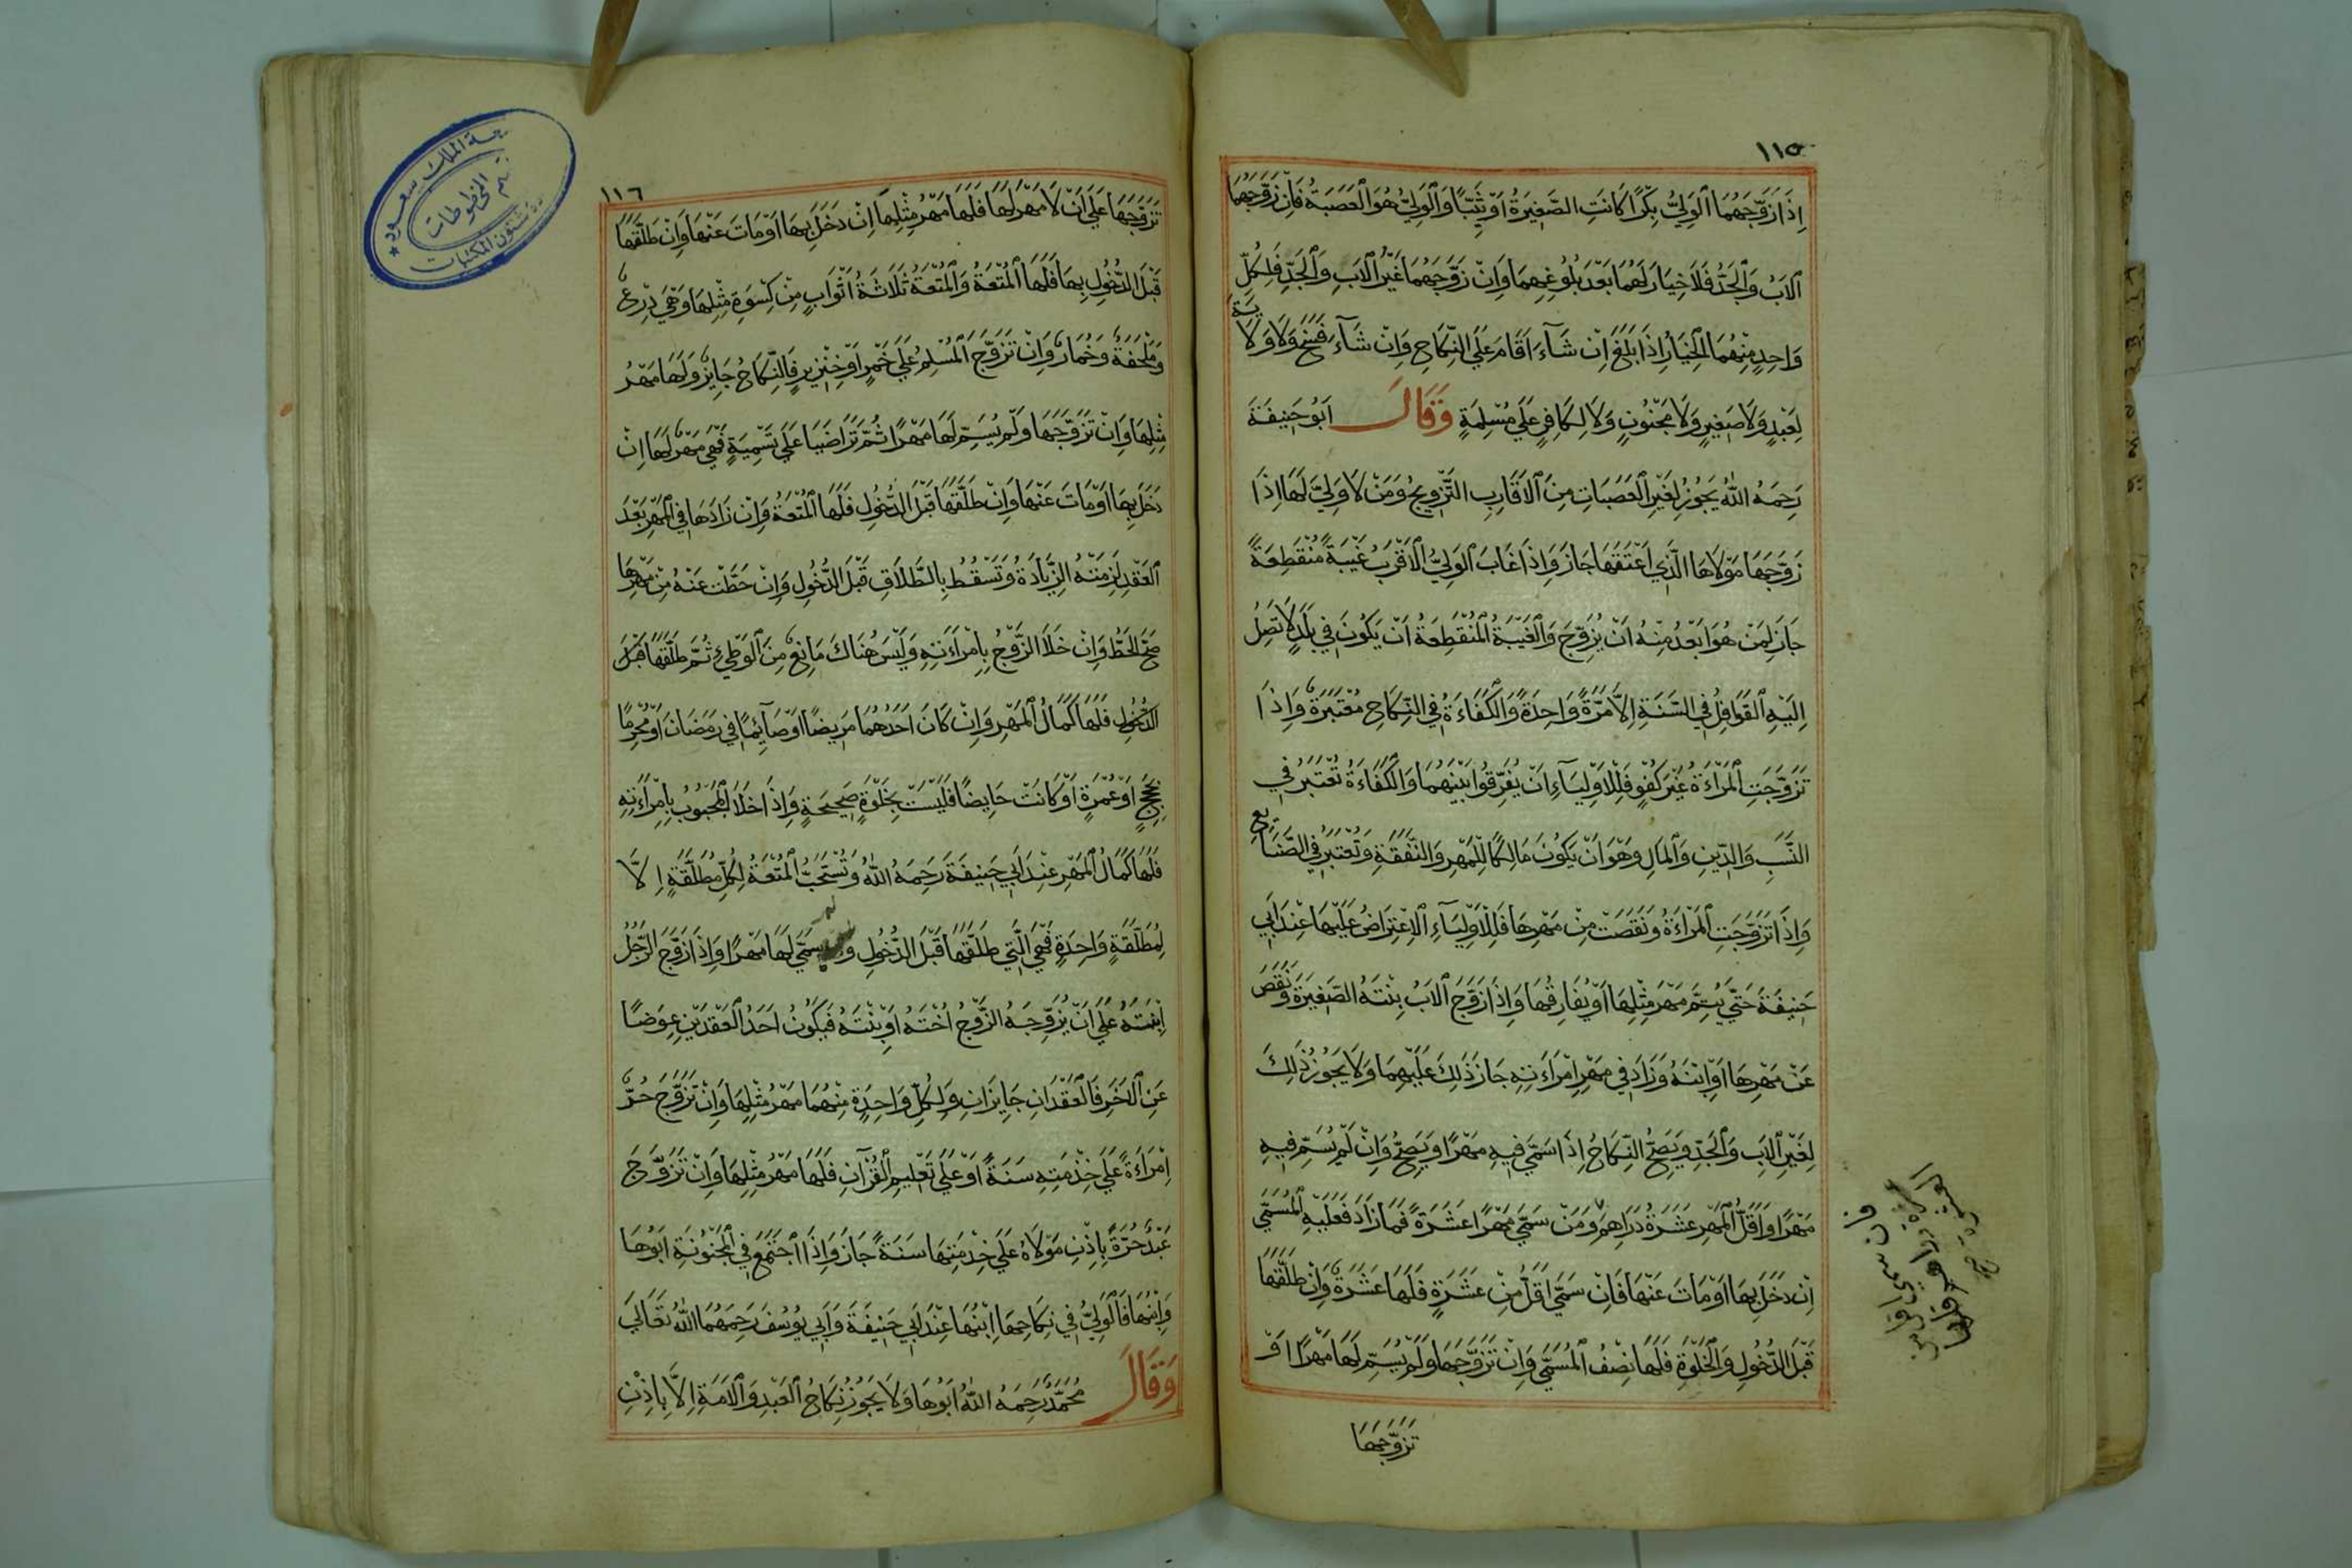 ١١٥
إِذَا زَوَّجَهُمَا الْوَلِيُّ بِكْرًا كَانَتِ الصَّغِيرَةُ اَوْ ثَيِّبًا وَالْوَلِيُّ هُوَ الْعَصَبَةُ فَاِنْ زَوَّجَهُمَا
الْاَبُ وَالْجَدُّ فَلَا خِيَارَ لَهُمَا بَعْدَ بُلُوغِهِمَا وَاِنْ زَوَّجَهُمَا غَيْرُ الْاَبِ وَالْجَدِّ فَلِكُلِّ
وَاحِدٍ مِنْهُمَا الْخِيَارُ اِذَا بَلَغَ اِنْ شَآءَ اَقَامَ عَلَى النِّكَاحِ وَاِنْ شَآءَ فَسَخَ وَلَا وَلَايَةَ
لِعَبْدٍ وَلَا صَغِيرٍ وَلَا مَجْنُونٍ وَلَا لِكَافِرٍ عَلَى مُسْلِمَةٍ وَقَالَ اَبُو حَنِيفَةَ
رَحِمَهُ اللهُ يَجُوزُ لِغَيْرِ الْعَصَبَاتِ مِنَ الْاَقَارِبِ التَّزْوِيجُ وَمَنْ لَا وَلِيَّ لَهَا اِذَا
زَوَّجَهَا مَوْلَاهَا الَّذِي اَعْتَقَهَا جَازَ وَاِذَا غَابَ الْوَلِيُّ الْاَقْرَبُ غَيْبَةً مُنْقَطِعَةً
جَازَ لِمَنْ هُوَ اَبْعَدُ مِنْهُ اَنْ يُزَوِّجَ وَالْغَيْبَةُ الْمُنْقَطِعَةُ اَنْ يَكُونَ فِي بَلَدٍ لَا تَصِلُ
اِلَيْهِ الْقَوَافِلُ فِي السَّنَةِ اِلَّا مَرَّةً وَاحِدَةً وَالْكَفَاءَةُ فِي النِّكَاحِ مُعْتَبَرَةٌ وَاِذَا
تَزَوَّجَتِ الْمَرْاَةُ غَيْرَ كُفْوٍ فَلِلْاَوْلِيَآءِ اَنْ يُفَرِّقُوا بَيْنَهُمَا وَالْكَفَاءَةُ تُعْتَبَرُ فِي
النَّسَبِ وَالدِّينِ وَالْمَالِ وَهُوَ اَنْ يَكُونَ مَالِكًا لِلْمَهْرِ وَالنَّفَقَةِ وَتُعْتَبَرُ فِي الصَّنَايِعِ
وَاِذَا تَزَوَّجَتِ الْمَرْاَةُ وَنَقَصَتْ مِنْ مَهْرِهَا فَلِلْاَوْلِيَآءِ الْاِعْتِرَاضُ عَلَيْهَا عِنْدَ اَبِي
حَنِيفَةَ حَتَّى يُتِمَّ مَهْرَ مِثْلِهَا اَوْ يُفَارِقَهَا وَاِذَا زَوَّجَ الْاَبُ بِنْتَهُ الصَّغِيرَةَ وَنَقَصَ
عَنْ مَهْرِهَا اَوِ ابْنَهُ وَزَادَ فِي مَهْرِ امْرَاَتِهِ جَازَ ذَلِكَ عَلَيْهِمَا وَلَا يَجُوزُ ذَلِكَ
لِغَيْرِ الْاَبِ وَالْجَدِّ وَيَصِحُّ النِّكَاحُ اِذَا سَمَّى فِيهِ مَهْرًا وَيَصِحُّ وَاِنْ لَمْ يُسَمِّ فِيهِ
مَهْرًا وَاَقَلُّ الْمَهْرِ عَشَرَةُ دَرَاهِمَ وَمَنْ سَمَّى مَهْرًا عَشَرَةً فَمَا زَادَ فَعَلَيْهِ الْمُسَمَّى
اِنْ دَخَلَ بِهَا اَوْ مَاتَ عَنْهَا فَاِنْ سَمَّى اَقَلَّ مِنْ عَشَرَةٍ فَلَهَا عَشَرَةٌ وَاِنْ طَلَّقَهَا
قَبْلَ الدُّخُولِ وَالْخَلْوَةِ فَلَهَا نِصْفُ الْمُسَمَّى وَاِنْ تَزَوَّجَهَا وَلَمْ يُسَمِّ لَهَا مَهْرًا اَوْ
تَزَوَّجَهَا
فان سمى اقل من
عشرة دراهم فلها
العشرة صح
١١٦
تَزَوَّجَهَا عَلَى اَنْ لَا مَهْرَ لَهَا فَلَهَا مَهْرُ مِثْلِهَا اِنْ دَخَلَ بِهَا اَوْ مَاتَ عَنْهَا وَاِنْ طَلَّقَهَا
قَبْلَ الدُّخُولِ بِهَا فَلَهَا الْمُتْعَةُ وَالْمُتْعَةُ ثَلَاثَةُ اَثْوَابٍ مِنْ كِسْوَةِ مِثْلِهَا وَهِيَ دِرْعٌ
وَمِلْحَفَةٌ وَخُمَارٌ وَاِنْ تَزَوَّجَ الْمُسْلِمُ عَلَى خَمْرٍ اَوْ خِنْزِيرٍ فَالنِّكَاحُ جَايِزٌ وَلَهَا مَهْرُ
مِثْلِهَا وَاِنْ تَزَوَّجَهَا وَلَمْ يُسَمِّ لَهَا مَهْرًا ثُمَّ تَرَاضَيَا عَلَى تَسْمِيَةٍ فَهِيَ مَهْرٌ لَهَا اِنْ
دَخَلَ بِهَا اَوْ مَاتَ عَنْهَا وَاِنْ طَلَّقَهَا قَبْلَ الدُّخُولِ فَلَهَا الْمُتْعَةُ وَاِنْ زَادَهَا فِي الْمَهْرِ بَعْدَ
الْعَقْدِ لَزِمَتْهُ الزِّيَادَةُ وَتَسْقُطُ بِالطَّلَاقِ قَبْلَ الدُّخُولِ وَاِنْ حَطَّتْ عَنْهُ مِنْ مَهْرِهَا
صَحَّ الْحَطُّ وَاِنْ خَلَا الزَّوْجُ بِامْرَاَتِهِ وَلَيْسَ هُنَاكَ مَانِعٌ مِنَ الْوَطْيِ ثُمَّ طَلَّقَهَا قَبْلَ
الدُّخُولِ فَلَهَا كَمَالُ الْمَهْرِ وَاِنْ كَانَ اَحَدُهُمَا مَرِيضًا اَوْ صَآئِمًا فِي رَمَضَانَ اَوْ مُحْرِمًا
بِحَجٍّ اَوْ عُمْرَةٍ اَوْ كَانَتْ حَايِضًا فَلَيْسَتْ بِخَلْوَةٍ صَحِيحَةٍ وَاِذَا خَلَا الْمَجْبُوبُ بِامْرَاَتِهِ
فَلَهَا كَمَالُ الْمَهْرِ عِنْدَ اَبِي حَنِيفَةَ رَحِمَهُ اللهُ وَتُسْتَحَبُّ الْمُتْعَةُ لِكُلِّ مُطَلَّقَةٍ اِلَّا
لِمُطَلَّقَةٍ وَاحِدَةٍ فَهِيَ الَّتِي طَلَّقَهَا قَبْلَ الدُّخُولِ سَمَّى لَهَا مَهْرًا وَاِذَا زَوَّجَ الرَّجُلُ
اِبْنَتَهُ عَلَى اَنْ يُزَوِّجَهُ الزَّوْجُ اُخْتَهُ اَوْ بِنْتَهُ فَيَكُونُ اَحَدُ الْعَقْدَيْنِ عِوَضًا
عَنِ الْاٰخَرِ فَالْعَقْدَانِ جَايِزَانِ وَلِكُلِّ وَاحِدَةٍ مِنْهُمَا مَهْرُ مِثْلِهَا وَاِنْ تَزَوَّجَ حُرٌّ
اِمْرَاَةً عَلَى خِدْمَتِهِ سَنَةً اَوْ عَلَى تَعْلِيمِ الْقُرْآنِ فَلَهَا مَهْرُ مِثْلِهَا وَاِنْ تَزَوَّجَ
عَبْدٌ حُرَّةً بِاِذْنِ مَوْلَاهُ عَلَى خِدْمَتِهَا سَنَةً جَازَ وَاِذَا اجْتَمَعَ فِي الْمَجْنُونَةِ اَبُوهَا
وَابْنُهَا فَالْوَلِيُّ فِي نِكَاحِهَا اِبْنُهَا عِنْدَ اَبِي حَنِيفَةَ وَاَبِي يُوسُفَ رَحِمَهُمَا اللهُ تَعَالَى
وَقَالَ مُحَمَّدٌ رَحِمَهُ اللهُ اَبُوهَا وَلَا يَجُوزُ نِكَاحُ الْعَبْدِ وَالْاَمَةِ اِلَّا بِاِذْنِ
الملك سعود
قسم المخطوطات
شئون المكتبات